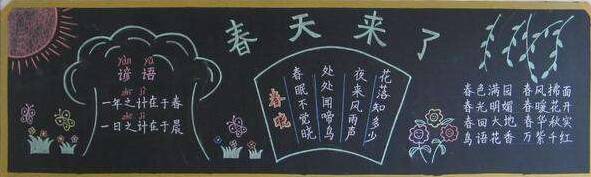 春天来了
yàn yǔ
谚语
zhī jì
一年之计在于春
zhī jì
一日之计在于晨
春晓
春眠不觉晓
处处闻啼鸟
夜来风雨声
花落知多少
春色满园 春风拂面
春光明媚 春暖花开
春回大地 春华秋实
鸟语花香 万紫千红